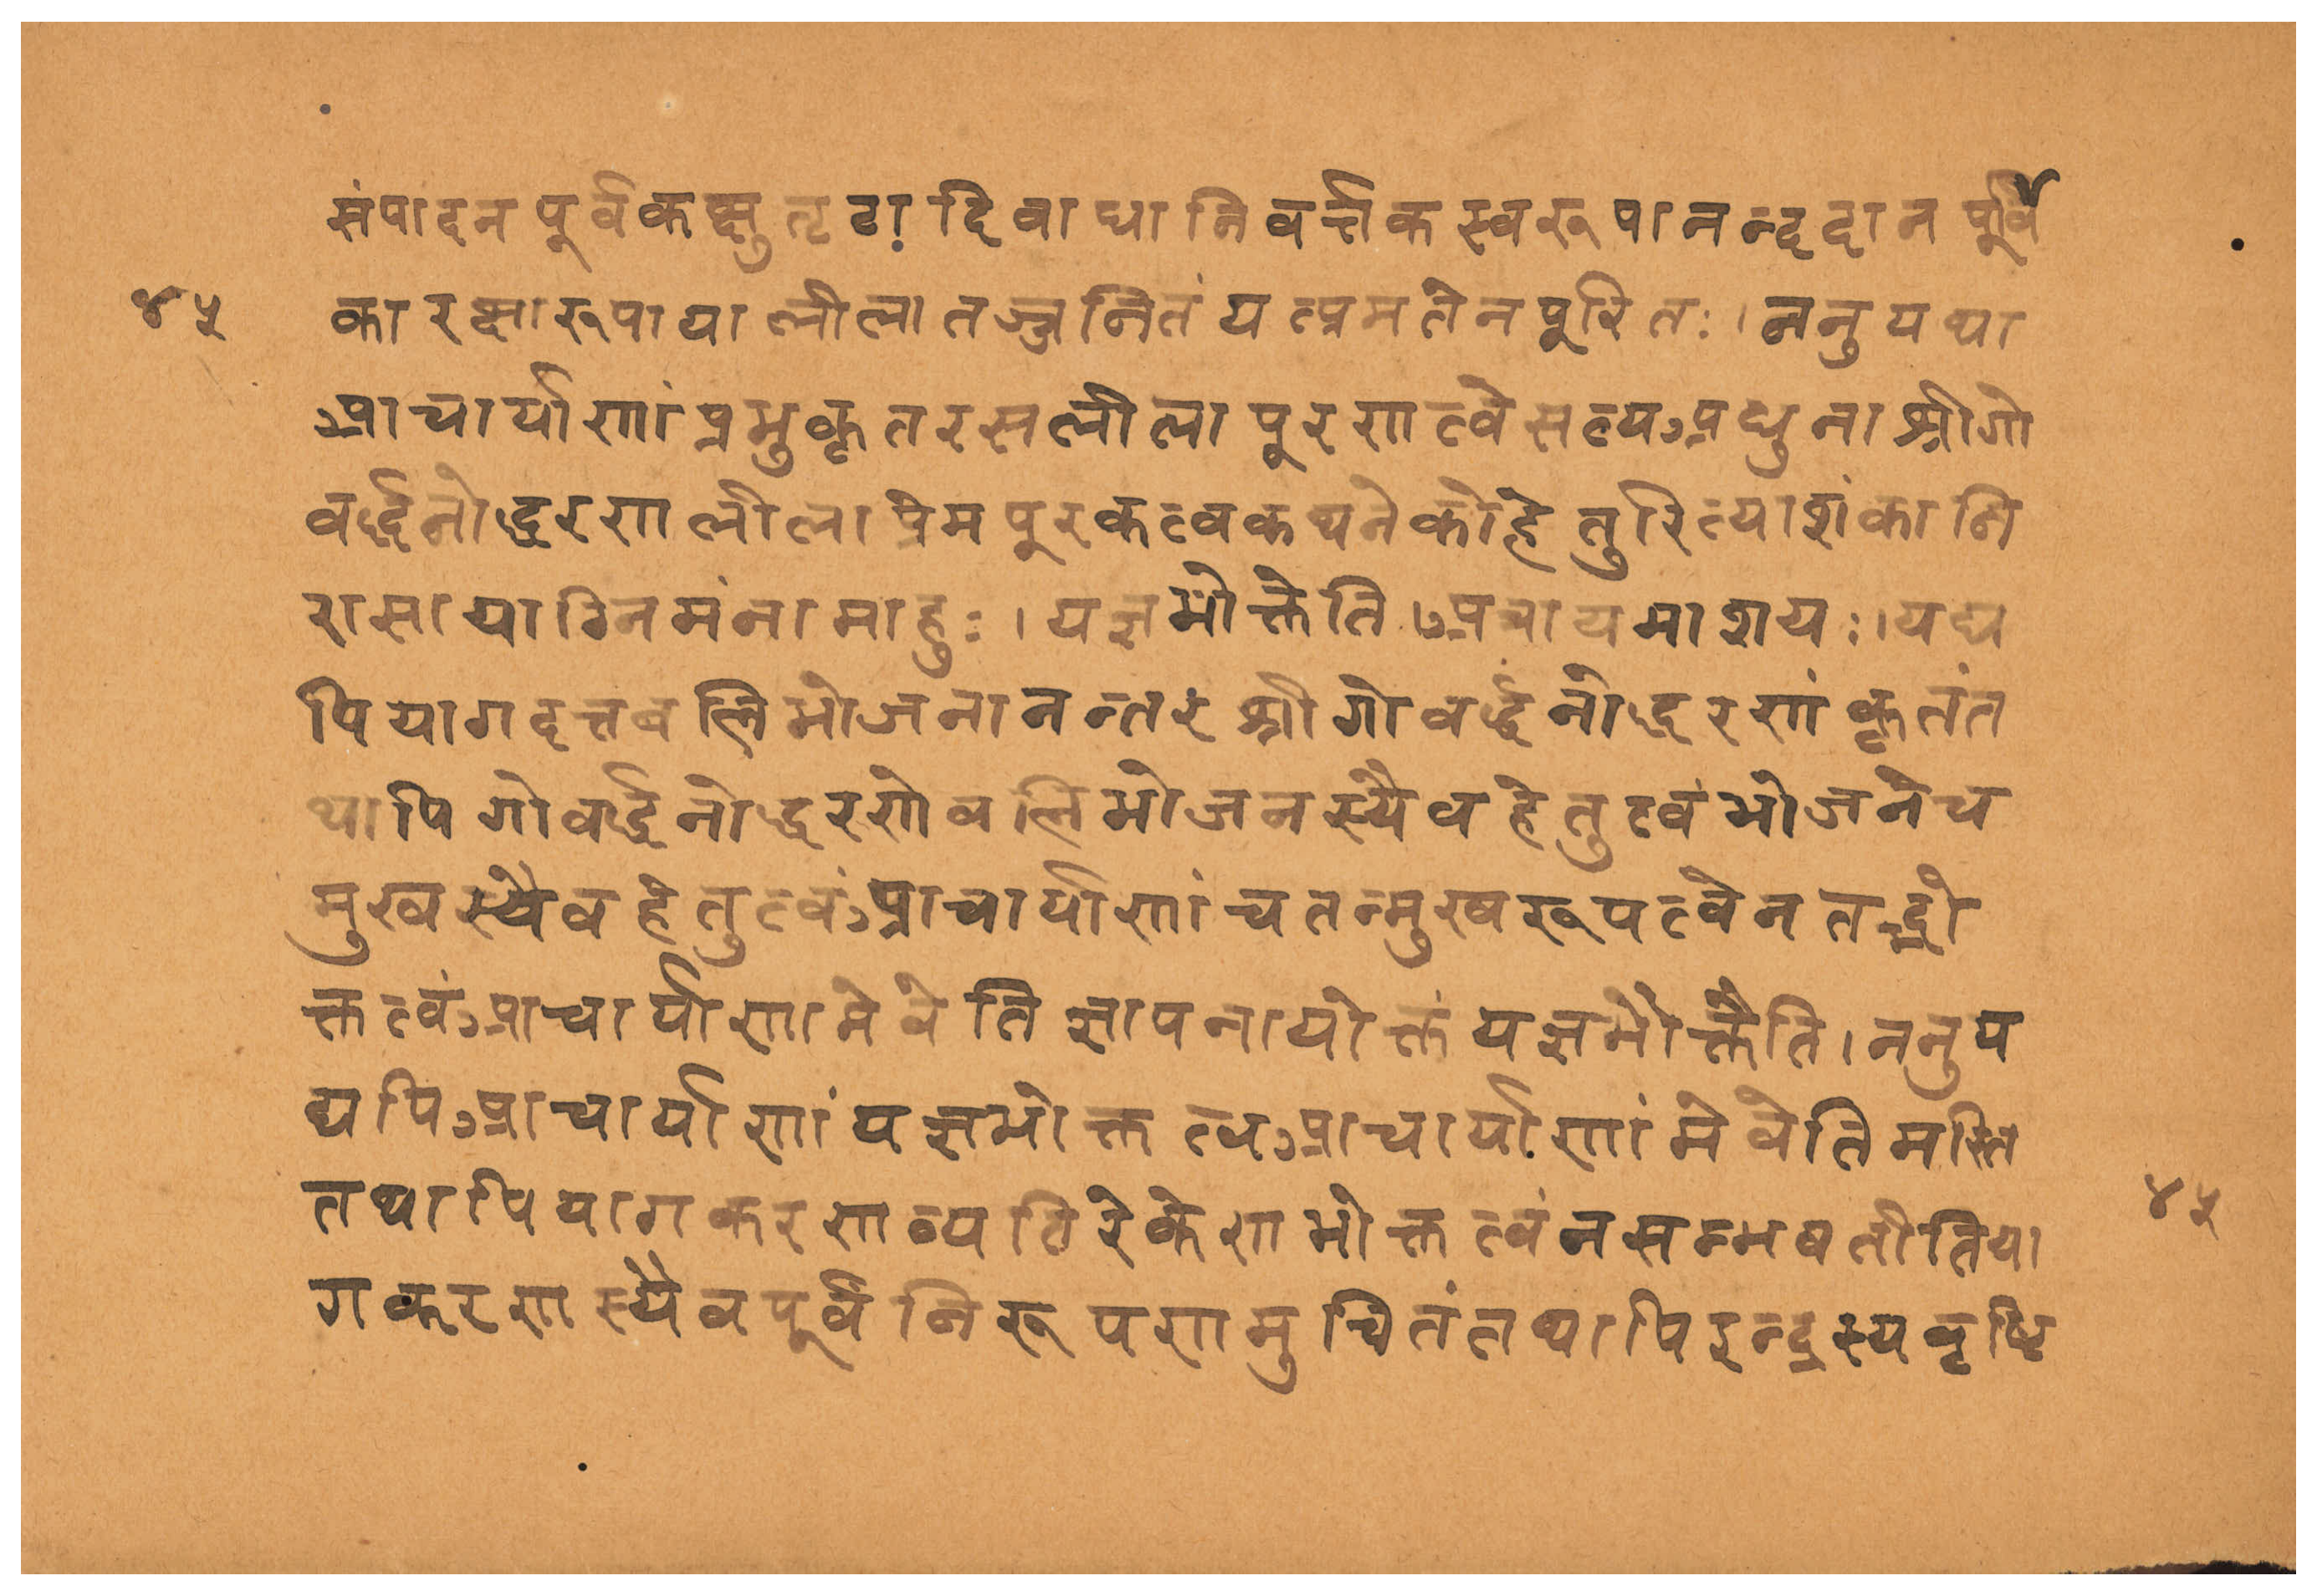 संपादनपूर्वकक्षुतृटादिबाधानिवर्त्तकस्वरूपानन्ददानपूर्वि
४५
कारक्षारूपायालीलातज्जनितंयत्प्रमतेनपूरितः।ननुयथा
आचार्याणांप्रभुकृतरसलीलापूरणत्वेसत्यअधुनाश्रीगो
वर्द्धनोद्धरणलीलाप्रेमपूरकत्वकथनेकोहेतुरित्याशंकानि
रासायाग्निमंनामाहुः।यज्ञभोक्तेति।अत्रायमाशयः।यद्य
पियागदत्तबलिभोजनानन्तरंश्रीगोवर्द्धनोद्धरणंकृतंत
थापिगोवर्द्धनोद्धरणेबलिभोजनस्यैवहेतुत्वंभोजनेच
मुखस्यैवहेतुत्वंआचार्याणांचतन्मुखरूपत्वेनतद्भो
क्तत्वंआचार्याणामेवेतिज्ञापनायोक्तंयज्ञभोक्तैति।ननुय
द्यपिआचार्याणांयज्ञभोक्तत्वआचार्याणांमेवेतिमस्ति
तथापियागकरणव्यतिरेकेणभोक्तत्वंनसम्भवतीतिया
४५
गकरणस्यैवपूर्वंनिरूपणमुचितंतथापिइन्द्रस्यवृष्टि